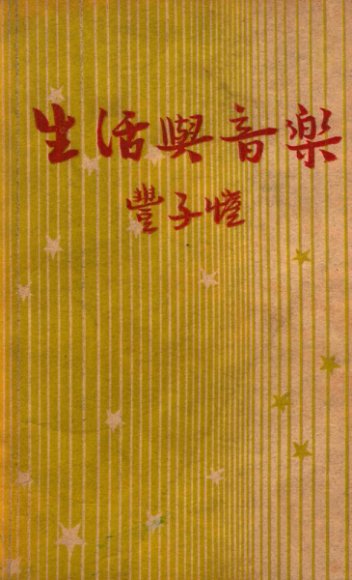 生活與音樂
豐子愷